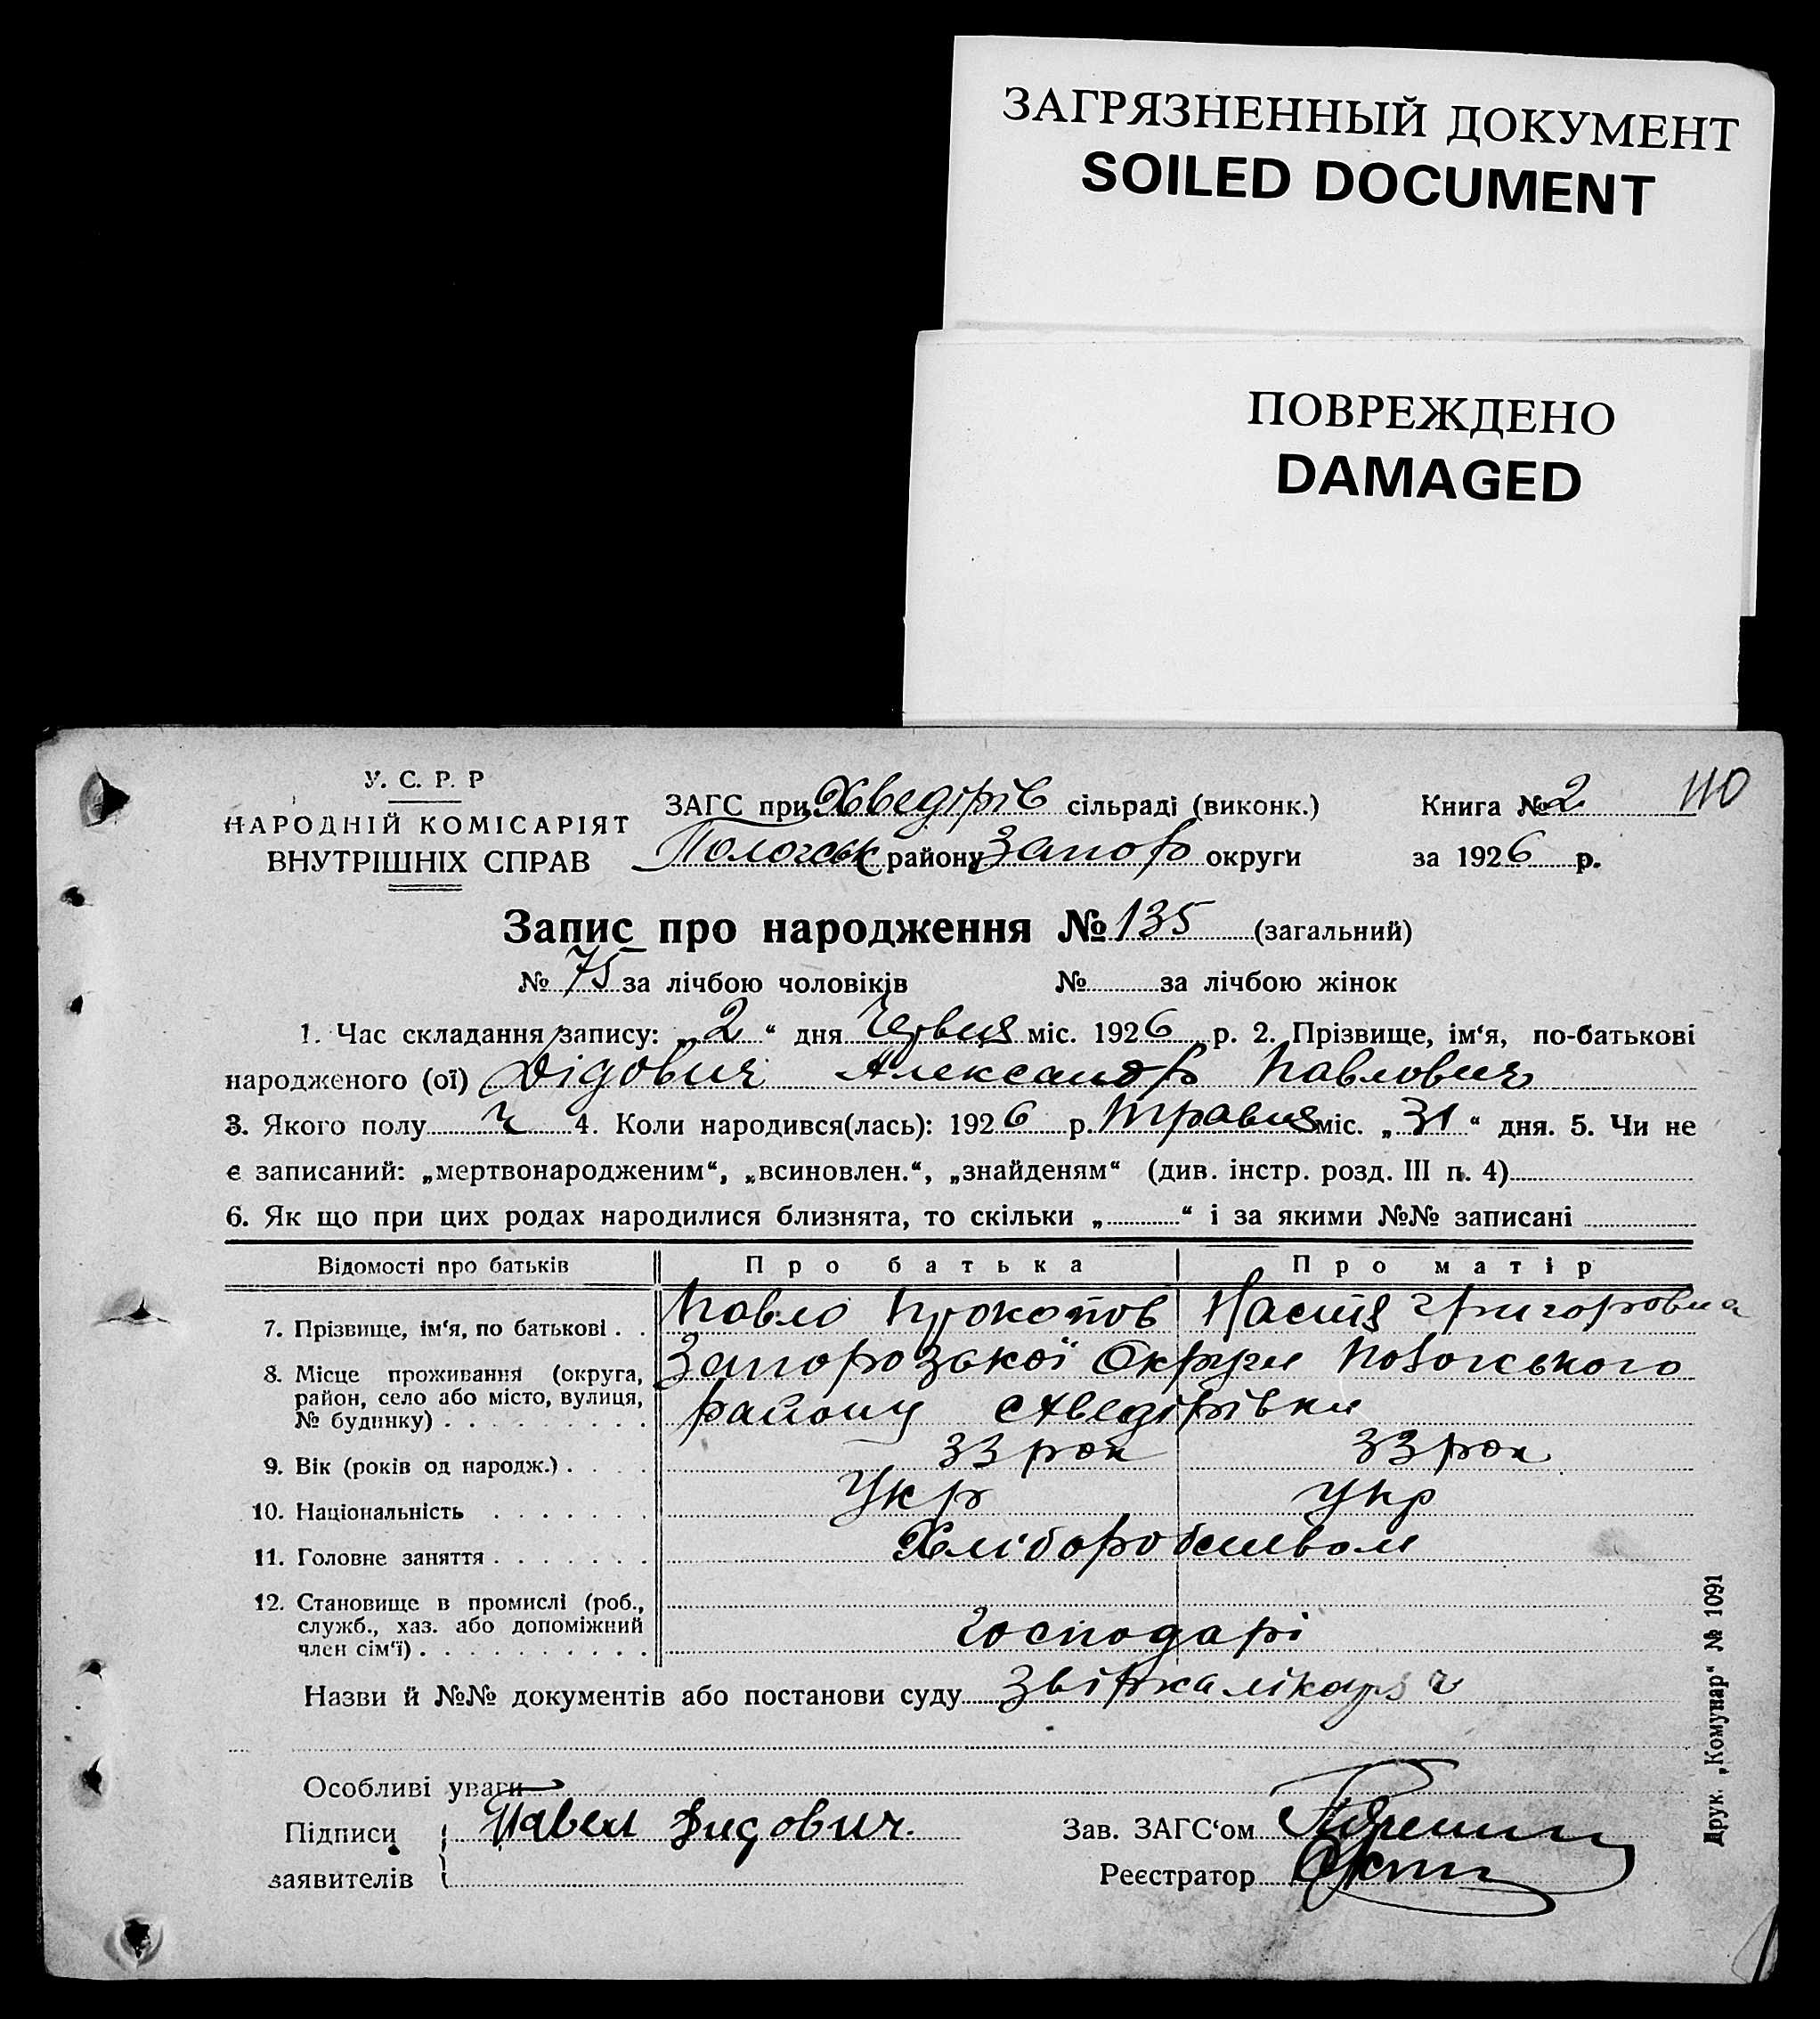 ЗАГРЯЗНЕННЫЙ ДОКУМЕНТ
SOILED DOCUMENT
ПОВРЕЖДЕНО
DAMAGED
У. С. Р. Р
НАРОДНІЙ КОМІСАРІЯТ
ВНУТРІШНІХ СПРАВ
ЗАГС при Хведірів сільраді (виконк.)
Пологськ району Запор округи
Книга № 2 110
за 1926 р.
Запис про народження № 135 (загальний)
№ 75 за лічбою чоловіків № за лічбою жінок
1. Час складання запису: „2“ дня Червня міс. 1926 р. 2. Прізвище, ім‘я, по-батькові
народженого (ої) Дідович Александр Павлович
3. Якого полу ч 4. Коли народився(лась): 1926 р. травня міс. „31“ дня. 5. Чи не
є записаний: „мертвонародженим“, „всиновлен.“, „знайденям“ (див. інстр. розд. III п. 4)
6. Як що при цих родах народилися близнята, то скільки „ “ і за якими №№ записані
Відомості про батьків Про батька Про матір
7. Прізвище, ім‘я, по батькові . . Павло Прокопов Настя Григоровна
8. Місце проживання (округа, район, село або місто, вулиця, № будинку) . . . . . . . . . Запорозької Округи Пологського
району Хведірівки
9. Вік (років од народж.) . . . . 33 рок 33 рок
10. Національність . . . . . . . Укр Укр
11. Головне заняття . . . . . . . Хліборобством
12. Становище в промислі (роб., служб., хаз. або допоміжний член сім‘ї) . . . . . . . . . . Господарі
Назви й №№ документів або постанови суду
Особливі уваги
Підписи заявителів Павел Дидович.
Зав. ЗАГС‘ом
Реєстратор
Друк. „Комунар“ № 1091